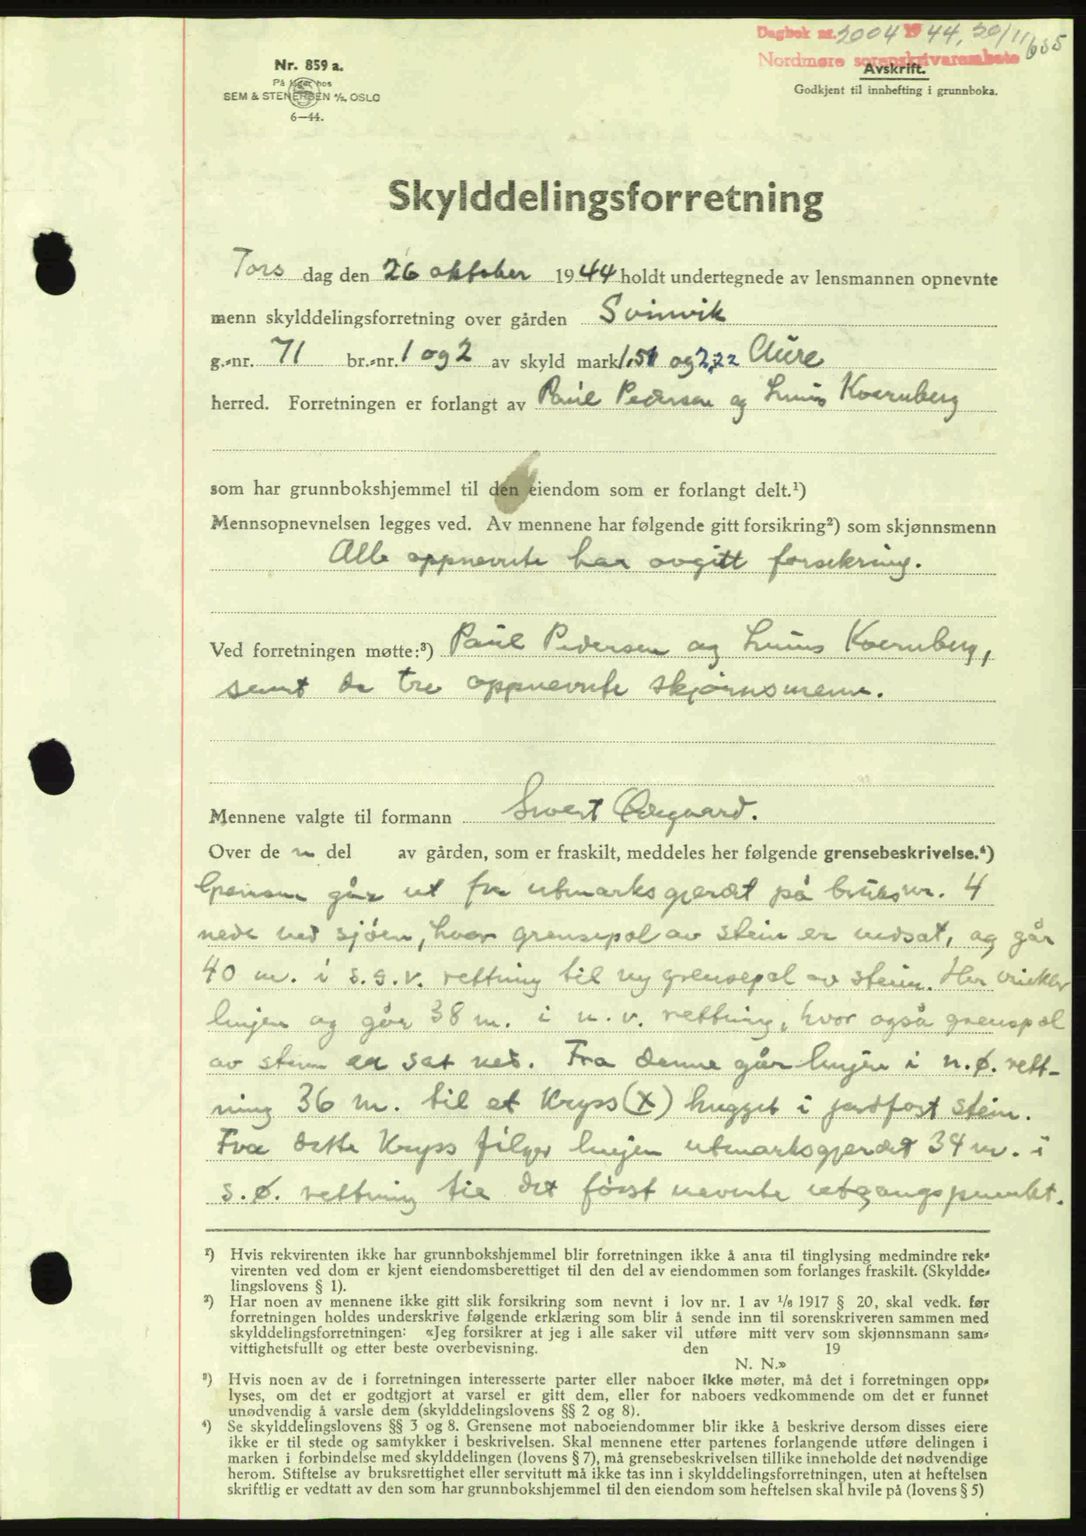 Dagbok nr. 2004 1944, 20/11
Nordmøre sorenskriverembete
635
Nr. 859 a.
På lager hos
SEM & STENERSEN A/S, OSLO
6—44.
Avskrift.
Godkjent til innhefting i grunnboka.
Skylddelingsforretning
Tors dag den 26 oktober 1944 holdt undertegnede av lensmannen opnevnte
menn skylddelingsforretning over gården Svinvik
g.-nr. 71 br.-nr. 1 og 2 av skyld mark 1,51 og 2,22 Aure
herred. Forretningen er forlangt av Paul Pedersen og Kvernberg
som har grunnbokshjemmel til den eiendom som er forlangt delt.¹)
Mennsopnevnelsen legges ved. Av mennene har følgende gitt forsikring²) som skjønnsmenn
Alle oppnevnte har avgitt forsikring.
Ved forretningen møtte:³) Paul Pedersen og Kvernberg,
samt de tre oppnevnte skjønnsmenn.
Mennene valgte til formann Sivert Ødegaard.
Over de n del av gården, som er fraskilt, meddeles her følgende grensebeskrivelse.⁴)
Grensen går ut fra utmarksgjerdet på bruksnr. 4
nede ved sjøen, hvor grensepel av stein er nedsat, og går
40 m. i s.s.v. rettning til ny grensepel av stein. Her vinkler
linjen og går 38 m. i n.v. rettning, hvor også grenspel
av stein er sat ned. Fra denne går linjen i n.ø. rett-
ning 36 m. til et Kryss (X) hugget i jordfast stein.
Fra dette Kryss følger linjen utmarksgjerdet 34 m. i
s.ø. rettning til det først nevnte utgangspunkt.
¹) Hvis rekvirenten ikke har grunnbokshjemmel blir forretningen ikke å anta til tinglysing medmindre rek-
virenten ved dom er kjent eiendomsberettiget til den del av eiendommen som forlanges fraskilt. (Skyldde-
lingslovens § 1).
²) Har noen av mennene ikke gitt slik forsikring som nevnt i lov nr. 1 av 1/6 1917 § 20, skal vedk. før
forretningen holdes underskrive følgende erklæring som blir å sende inn til sorenskriveren sammen med
skylddelingsforretningen: «Jeg forsikrer at jeg i alle saker vil utføre mitt verv som skjønnsmann sam-
vittighetsfullt og etter beste overbevisning. den 19
N. N.»
³) Hvis noen av de i forretningen interesserte parter eller naboer ikke møter, må det i forretningen opp-
lyses, om det er godtgjort at varsel er gitt dem, eller for naboers vedkommende om det er funnet
unødvendig å varsle dem (skylddelingslovens §§ 2 og 8).
⁴) Se skylddelingslovens §§ 3 og 8. Grensene mot naboeiendommer blir ikke å beskrive dersom disses eiere
ikke er til stede og samtykker i beskrivelsen. Skal mennene etter partenes forlangende utføre delingen i
marken i forbindelse med skylddelingen (lovens § 7), må grensebeskrivelsen tillike inneholde det nødvendige
herom. Stiftelse av bruksrettighet eller servitutt må ikke tas inn i skylddelingsforretningen, uten at heftelsen
skriftlig er vedtatt av den som har grunnbokshjemmel til den eiendom som heftelsen skal hvile på (lovens § 5)